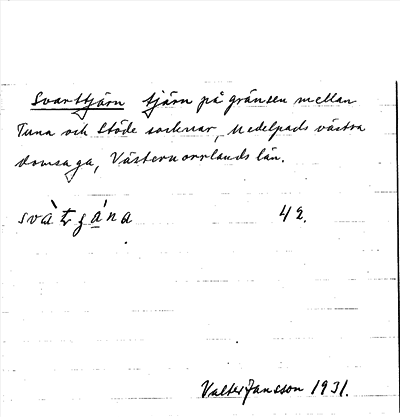 Svarttjärn tjärn på gränsen mellan
Tuna och Stöde socknar, Medelpads västra
domsaga, Västernorrlands län.
svàtʒána 42.
Valter Jansson 1931.